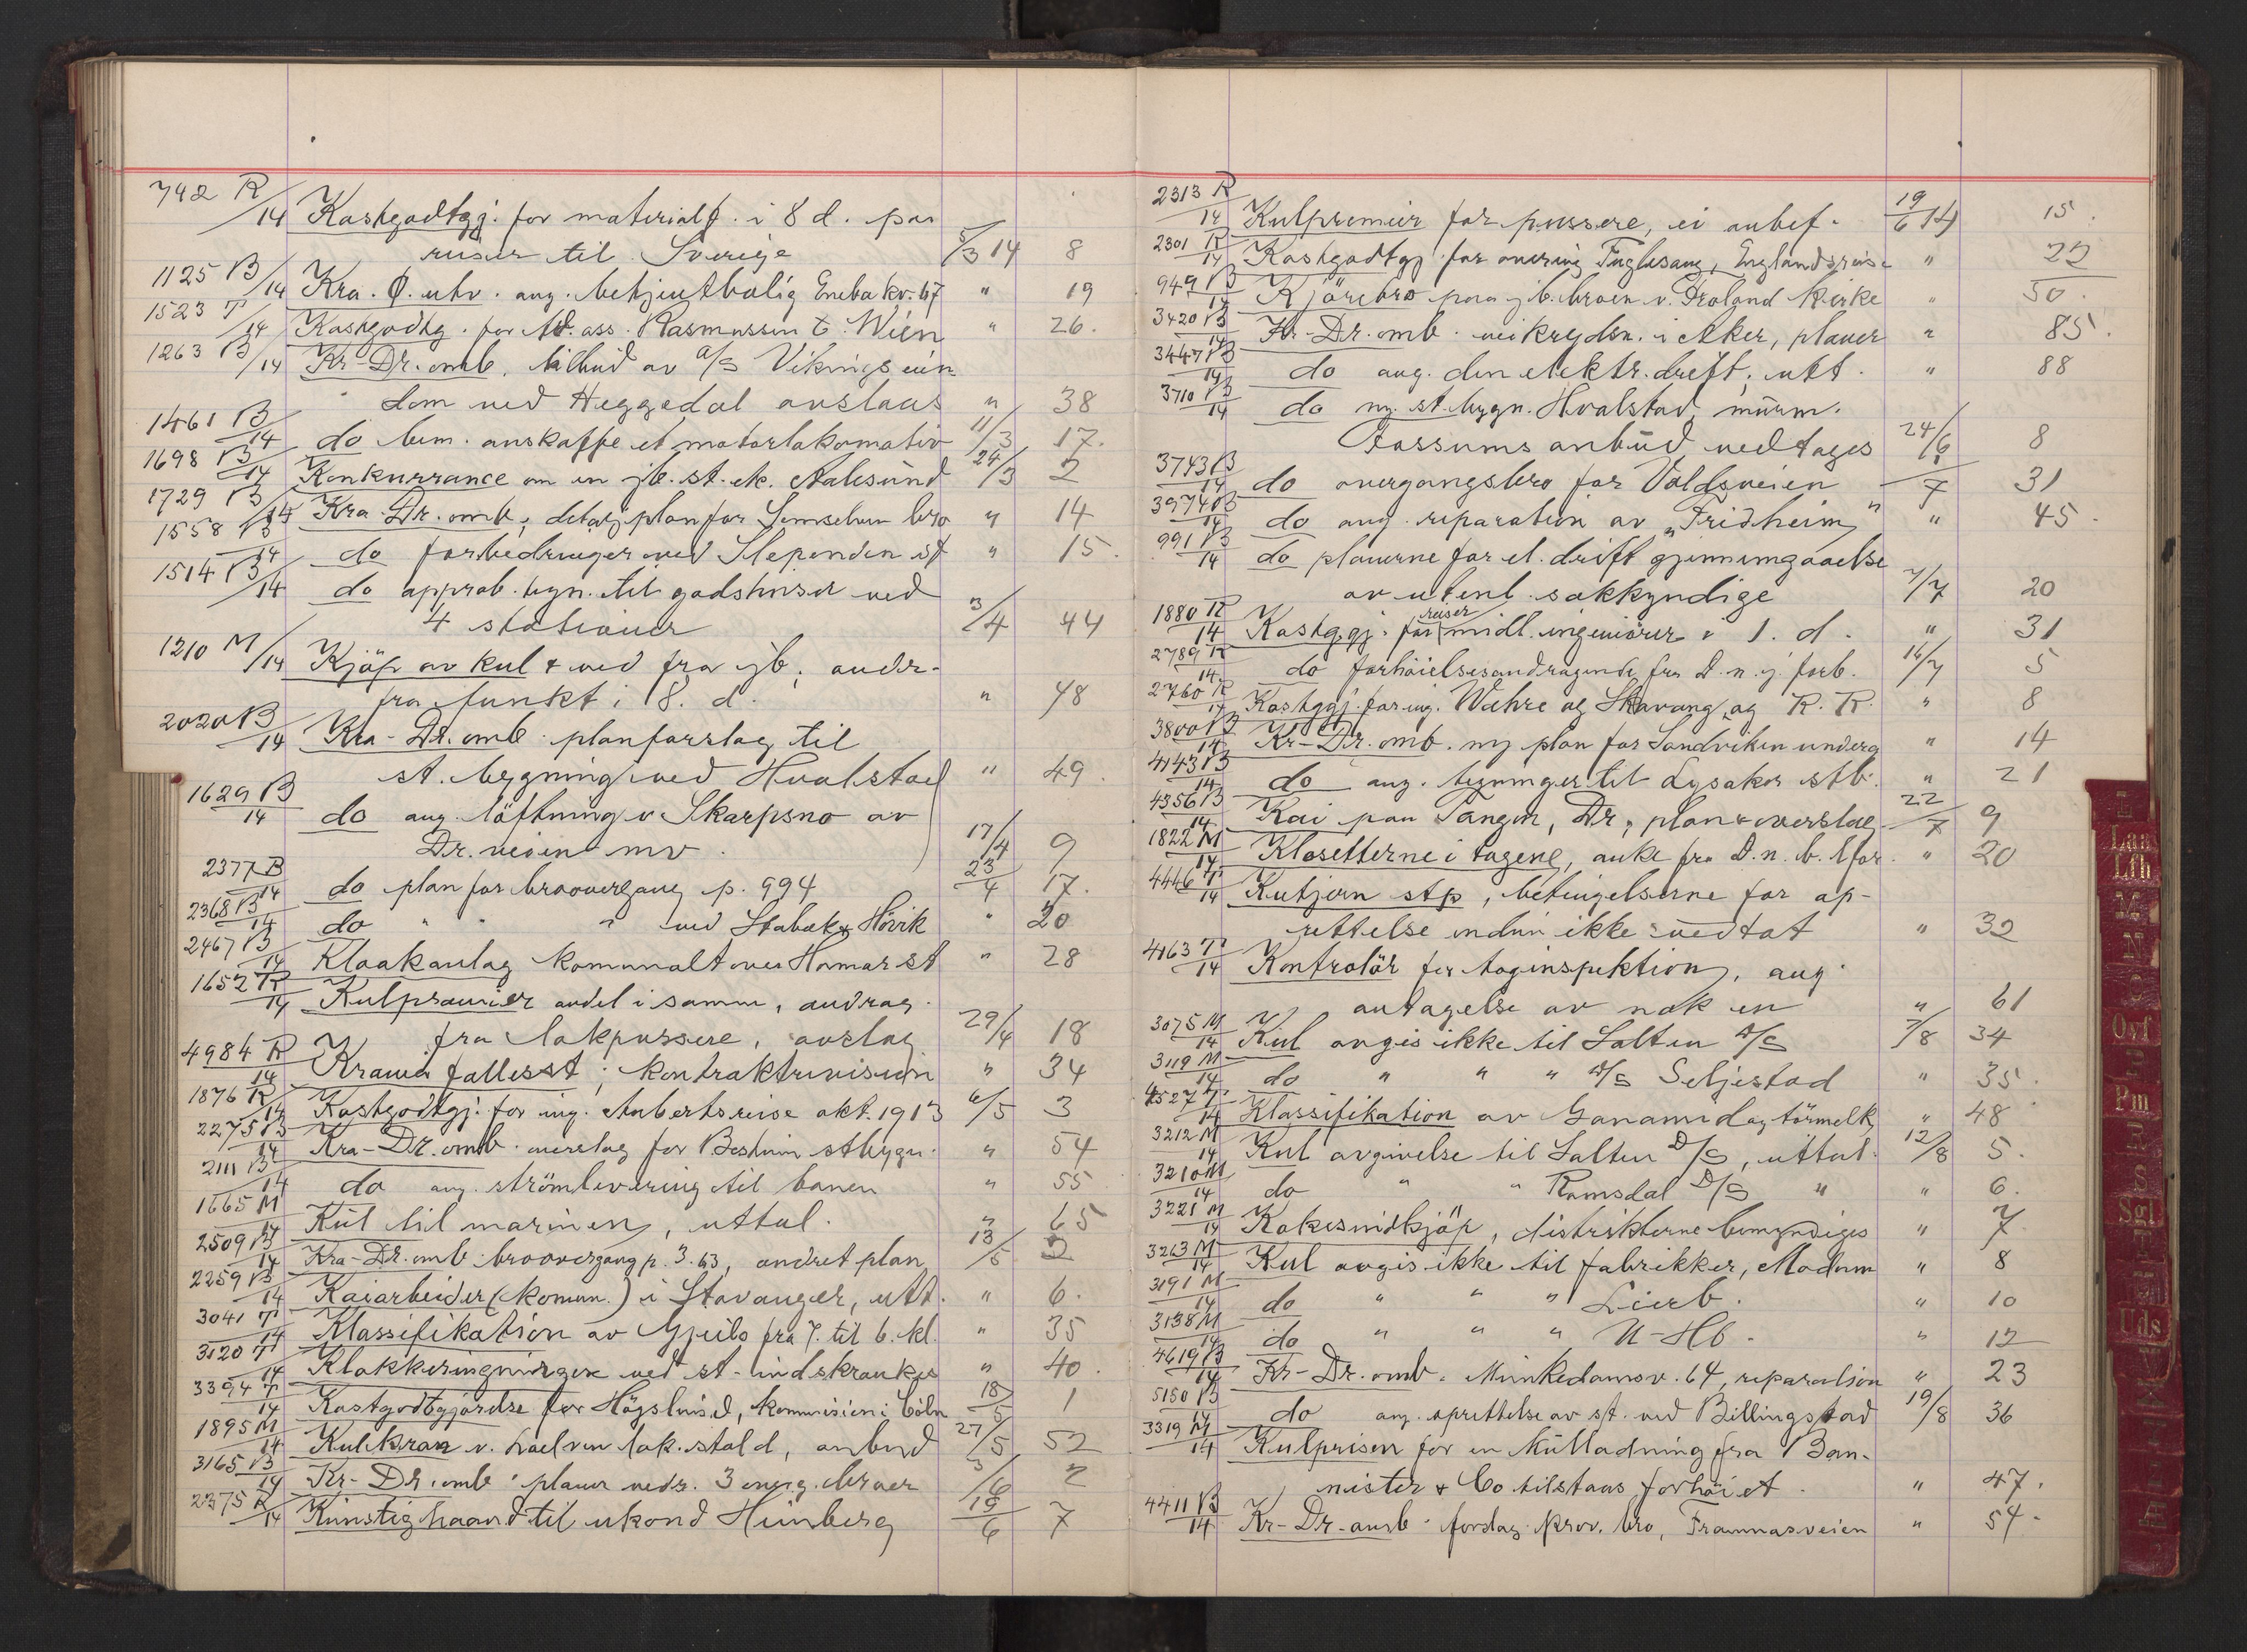 742 R/14 Kostgodtgj. for materialf. i 8 d. paa
reiser til Sverige 5/3 14 8
1125 B/14 Kra. Ø. utv. ang. betjentbolig Eneba kv. 47 " 19
1523 T/14 Kostgodtg. for Ad. ass. Rasmussen t. Wien " 26.
1263 B/14 Kr-Dr. omb. tilbud av A/S Vikings eien
dom ved Heggedal avslaas " 38
1461 B/14 do bem. anskaffe et motorlokomotiv 11/3 17.
1698 B/14 Konkurrance om en jb. st. ek. Aalesund 24/3 2
1729 B/14 Kra-Dr. omb, detaljplan for bro " 14
1558 B/14 do forbedringer ved Slependen st " 15.
1514 B/14 do approb. tegn. til godshuser ved
4 stationer 3/4 44
1210 M/14 Kjöp av kul & ved fra jb; andr.
fra funkt i 8. d. " 48
2020 B/14 Kra-Dr. omb. planforslag til
st. bygning ved Hvalstad " 49.
1629 B/14 do ang. löftning v Skarpsno av
Dr. veien mv. 17/4 9
2377 B/14 do plan for broovergang p. 994 23/4 17.
2368 B/14 do " " " ved Stabæk & Hövik " 20
2467 B/14 Kloakanlag komunalt over Hamar st " 28
1652 R/14 Kulpræmier andel i samm, andrag.
fra lokpussere, avslag 29/4 18
4984 R/14 Krania fallesst; kontraktrevision " 34
1876 R/14 Kostgodtgj. for ing. reise okt. 1913 6/5 3
2275 B/14 Kra-Dr. omb. overslag for Bestum stbygn. " 54
2111 B/14 do ang. strömlevering til banen " 55
1665 M/14 Kul til marinen, uttal. " 65
2509 B/14 Kra-Dr. omb broovergang p. 3.63, endret plan 13/5 3
2259 B/14 Kaiarbeider (komun.) i Stavanger, utt. " 6.
3041 T/14 Klassifikation av Gjeilo fra 7. til 6. kl. " 35
3120 T/14 Klokkeringningen ved st. indskrænkes " 40.
3394 T/14 Kostgodtgjörelse for Högslund, kommision i Cöln 18/5 1
1895 M/14 Kulkran v. Loelven lok. stald, anbud 27/5 52
3165 B/14 Kr-Dr. omb. planer vedr. 3 overg. broer 3/6 2
2375 R/14 Kunstig haand til ukond Heinberg 19/6 7
2313 R/14 Kulpremier for pussere, ei anbef. 19/6 14 15.
2301 R/14 Kostgodtgj for overing Fuglesang, Englandsreise " 22
949 B/14 Kjörebro paa jb. broen v. Trolgnd kirke " 50.
3420 B/14 Kr-Dr. omb. veikrydsn. i Aker, planer " 85.
3447 B/14 do ang. den elektr. drift, utt. " 88
3710 B/14 do ny. st. bygn. Hvalstad, murm.
Fossums anbud vedtages 24/6 8
3743 B/14 do overgangsbro for Voldsveien 1/7 31
3974 B/14 do ang. reparation av "Fridheim" " 45.
991 B/14 do planerne for el. drift gjennemgaaelse
av utenl. sakkyndige 7/7 20
1880 R/14 Kostg.gj. for reiser midl. ingeniörer i 1. d. " 31
2789 R/14 do forhöielsesandragende fra D. n. j. forb. 16/7 5
2760 R/14 Kostggj. for ing. Wehre og Skavang og R. R. " 8
3800 B/14 Kr-Dr. omb. ny plan for Sandviken underg " 14
4143 B/14 do ang. tegninger til Lysaker stb. " 21
4356 B/14 Kai paa Tangen, Dr; plan & overslag 22/7 9
1822 M/14 Klosetterne i togene, anke fra D. n. b. lfor. " 20
4446 T/14 Kutjern stp, betingelserne for op-
rettelse endnu ikke vedtat " 32
4163 T/14 Kontrolör for toginspektion, ang.
antagelse av nok en " 61
3075 M/14 Kul avgis ikke til Salten D/S 7/8 34
3119 M/14 do " " " D/S Seljestad " 35.
4527 T/14 Klassifikation av og törmelk " 48
3212 M/14 Kul avgivelse til Salten D/S, uttal. 12/8 5.
3210 M/14 do " " Ramsdal D/S " " 6.
3221 M/14 Koksindkjöp, distrikterne bemyndiges " 7
3263 M/14 Kul avgis ikke til fabrikker, Modum " 8
3191 M/14 do " " " Lierb. " 10
3138 M/14 do " " " U-Hb. " 12
4619 B/14 Kr-Dr. omb. Munkedamsv. 64, reparation " 23
5150 B/14 do ang. oprettelse av st. ved Billingstad 19/8 36
3319 M/14 Kulprisen for en kulladning fra Ban-
nister & Co tilstaas forhöiet. " 47.
4411 B/14 Kr-Dr-omb. forslag prov. bro, Framnæsveien " 54.
Lan
Lfh
M
N
O
Osf
P
Pm
R
S
Sgl
T
Uds